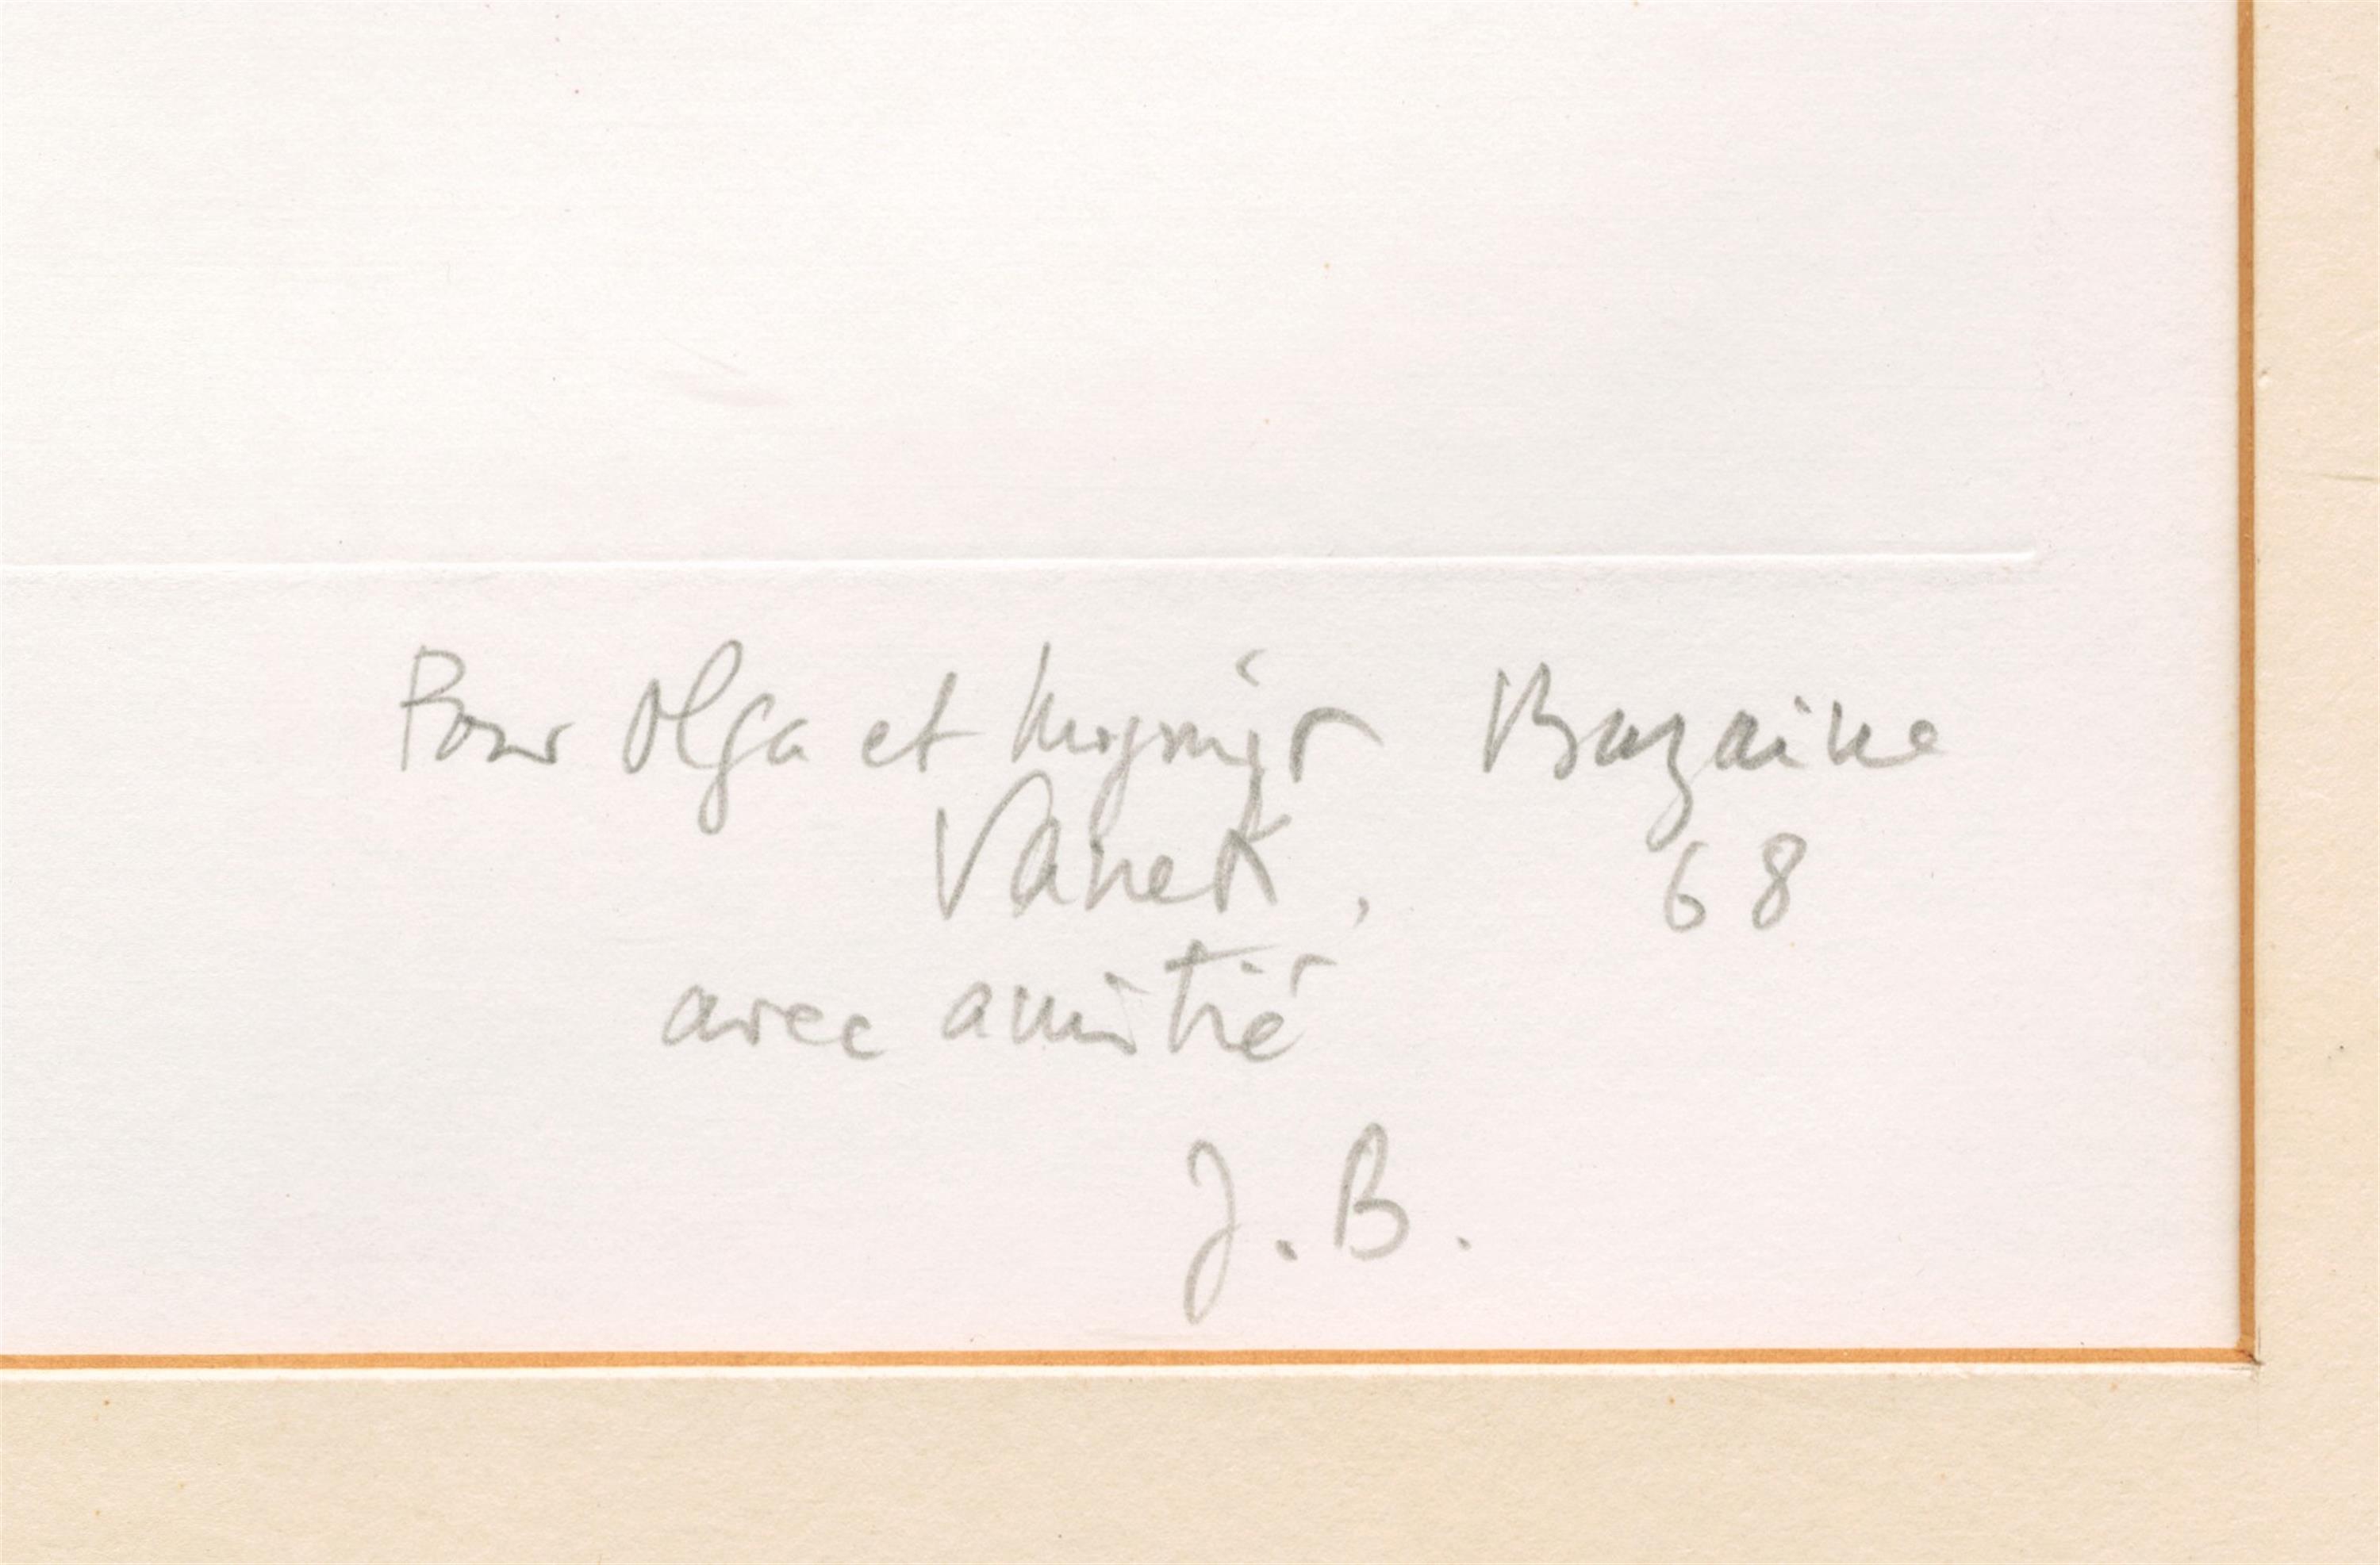 Pour Olga et Mojmir Bazaine
Vanek, 68
avec amitié
J. B.